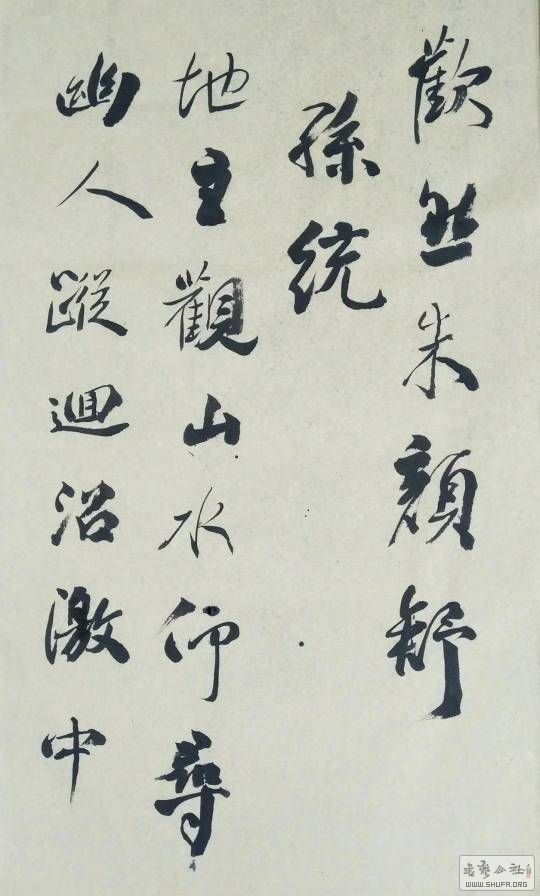 歡然朱顔舒
孫統
地主觀山水仰尋
幽人蹤迴沼激中
書藝公社
WWW.SHUFA.ORG